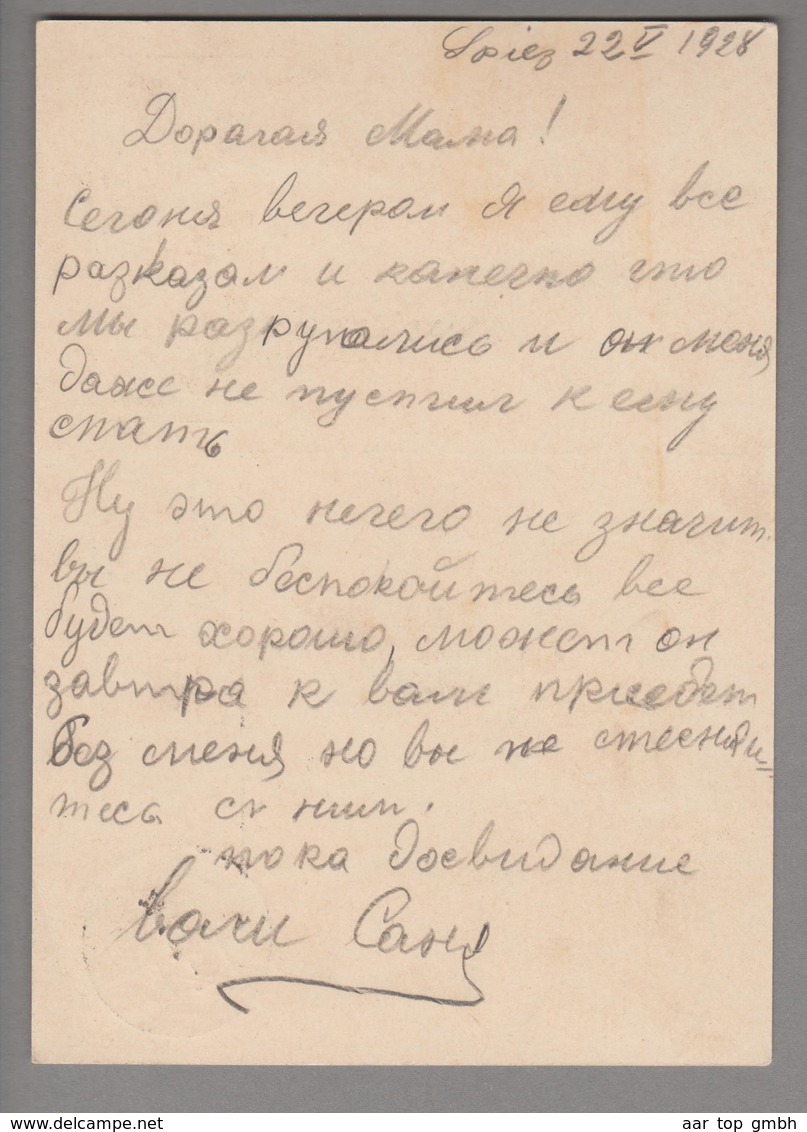 Spiez 22 V 1928
Дорагая Мама!
Сегоня вечером я ему все
разказал и канечно што
мы разругались и он меня
даже не пустил к ему
спать
Ну это нечего не значит
вы не беспокойтесь все
будет хорошо, может он
завтра к вам приедет
без меня но вы не стесняй-
тесь с ним.
пока досвидание
Саня
delcampe.net
aar top gmbh